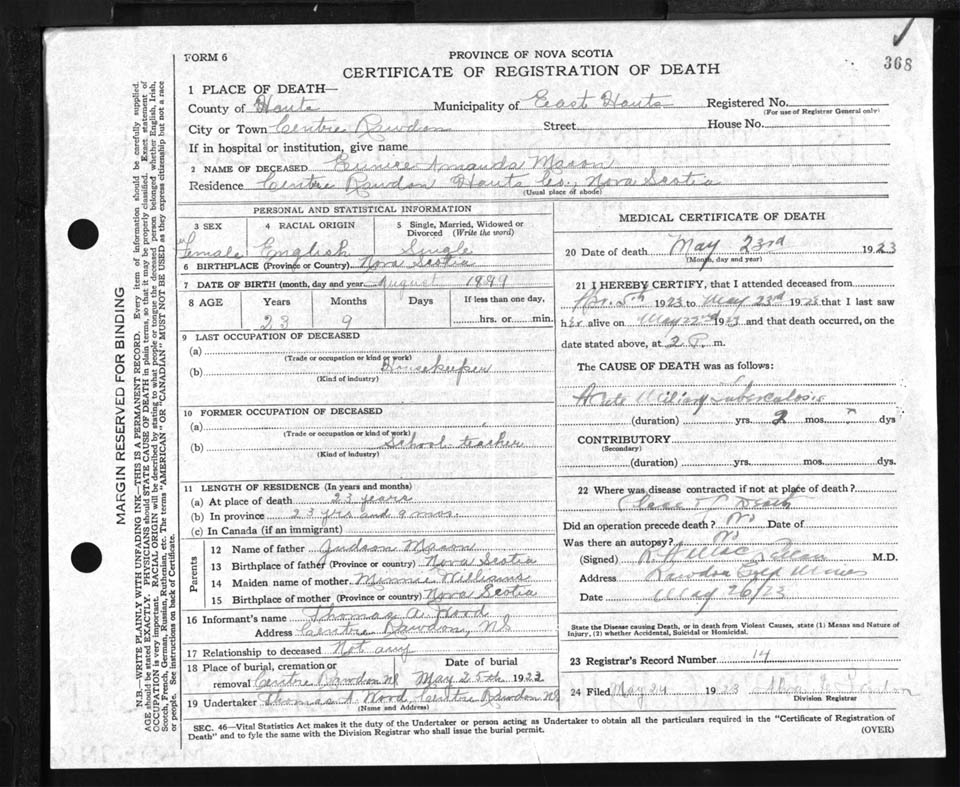 368
FORM 6
PROVINCE OF NOVA SCOTIA
CERTIFICATE OF REGISTRATION OF DEATH
1 PLACE OF DEATH—
County of Hants Municipality of East Hants Registered No.
(For use of Registrar General only)
City or Town Centre Rawdon Street House No.
If in hospital or institution, give name
2 NAME OF DECEASED Eunice Amanda Mason
Residence Centre Rawdon Hants Co., Nova Scotia
(Usual place of abode)
PERSONAL AND STATISTICAL INFORMATION
3 SEX 4 RACIAL ORIGIN 5 Single, Married, Widowed or Divorced (Write the word)
Female English Single
6 BIRTHPLACE (Province or Country) Nova Scotia
7 DATE OF BIRTH (month, day and year August 1899
8 AGE Years Months Days If less than one day,
23 9 hrs. or min.
9 LAST OCCUPATION OF DECEASED
(a)
(Trade or occupation or kind of work)
(b) Housekeeper
(Kind of industry)
10 FORMER OCCUPATION OF DECEASED
(a)
(Trade or occupation or kind of work)
(b) School teacher
(Kind of industry)
11 LENGTH OF RESIDENCE (In years and months)
(a) At place of death 23 years
(b) In province 23 yrs and 9 mos.
(c) In Canada (if an immigrant)
Parents
12 Name of father Judson Mason
13 Birthplace of father (Province or country) Nova Scotia
14 Maiden name of mother Minnie Williams
15 Birthplace of mother (Province or country) Nova Scotia
16 Informant's name Thomas A. Wood
Address Centre Rawdon, NS
17 Relationship to deceased Not any
18 Place of burial, cremation or Date of burial
removal Centre Rawdon NS May 25th 1923
19 Undertaker Thomas A Wood, Centre Rawdon NS
(Name and Address)
MEDICAL CERTIFICATE OF DEATH
20 Date of death May 23rd 1923
(Month, day and year)
21 I HEREBY CERTIFY, that I attended deceased from
Apr. 5th 1923 to May 23rd 1923 that I last saw
her alive on May 22nd 1923 and that death occurred, on the
date stated above, at 2 P. m.
The CAUSE OF DEATH was as follows:
Acute Miliary Tuberculosis
(duration) yrs. 2 mos. dys
CONTRIBUTORY
(Secondary)
(duration) yrs. mos. dys.
22 Where was disease contracted if not at place of death?
Place of Death
Did an operation precede death? No Date of
Was there an autopsy? No
(Signed) MacLellan M.D.
Address Rawdon Gold Mines
Date May 26/23
State the Disease causing Death, or in death from Violent Causes, state (1) Means and Nature of
Injury, (2) whether Accidental, Suicidal or Homicidal.
23 Registrar's Record Number 14
24 Filed May 24 1923
Division Registrar
SEC. 46—Vital Statistics Act makes it the duty of the Undertaker or person acting as Undertaker to obtain all the particulars required in the "Certificate of Registration of
Death" and to fyle the same with the Division Registrar who shall issue the burial permit. (OVER)
MARGIN RESERVED FOR BINDING
N.B.—WRITE PLAINLY WITH UNFADING INK—THIS IS A PERMANENT RECORD. Every item of information should be carefully supplied.
AGE should be stated EXACTLY. PHYSICIANS should STATE CAUSE OF DEATH in plain terms, so that it may be properly classified. Exact statement of
OCCUPATION is very important. RACIAL ORIGIN will be described by stating to what people or tongue the deceased person belonged whether English, Irish,
Scotch, French, German, Russian, Ruthenian, etc. The terms "AMERICAN" OR "CANADIAN" MUST NOT BE USED as they express citizenship but not a race
or people. See instructions on back of Certificate.